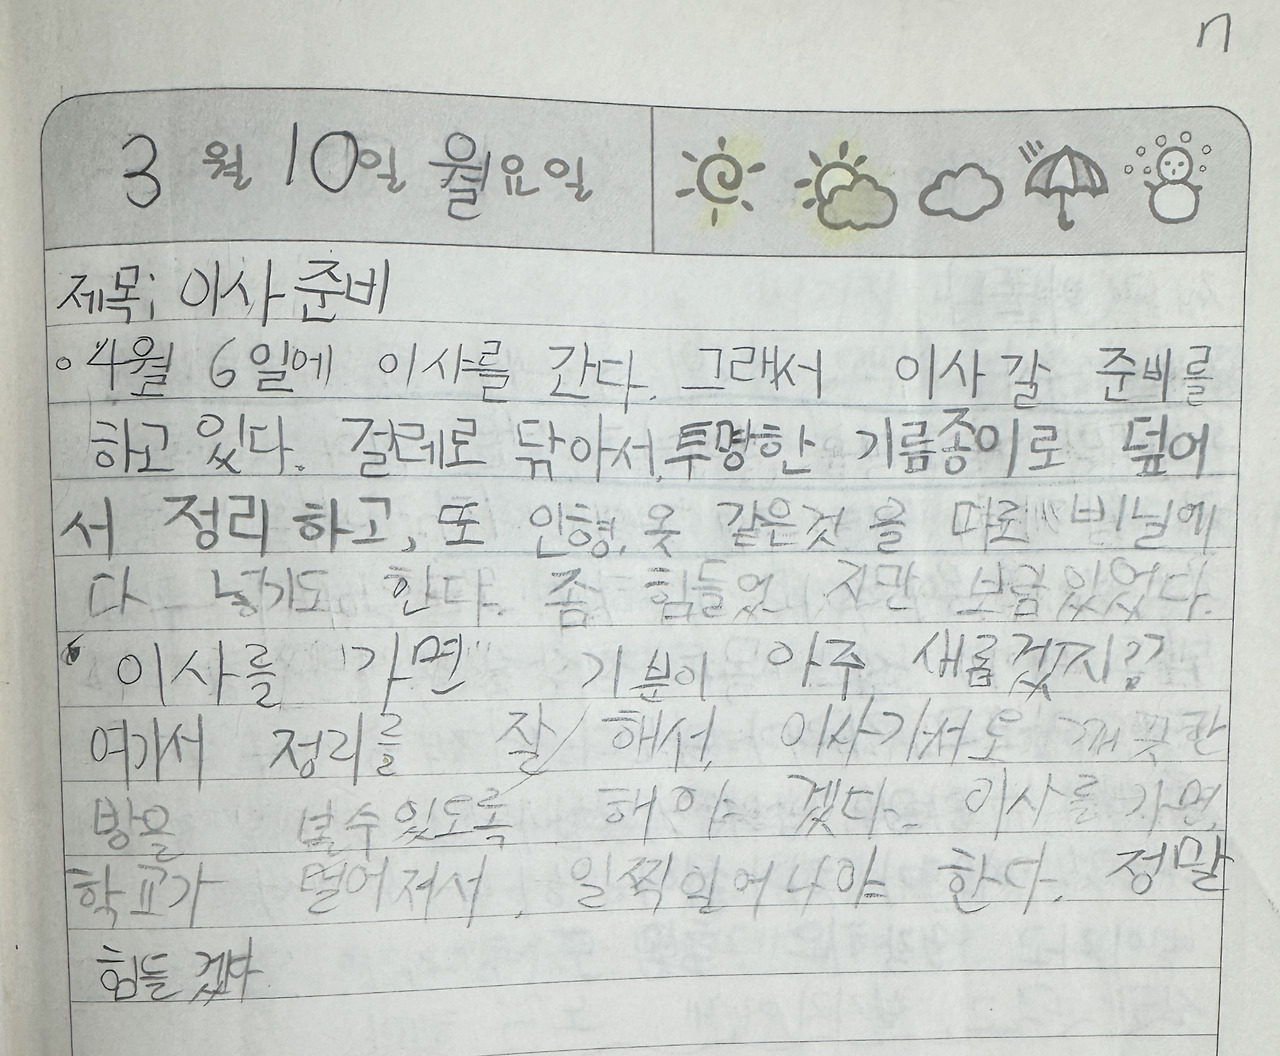 n
3월 10일 월요일
제목; 이사 준비
4월 6일에 이사를 간다. 그래서 이사 갈 준비를
하고 있다. 걸레로 닦아서, 투명한 기름종이로 덮어
서 정리 하고, 또 인형, 옷 같은것 을 따로 비닐에
다 넣기도 한다. 좀 힘들었 지만 보람있었다.
이사를 가면 기분이 아주 새롭겠지??
여기서 정리를 잘 해서, 이사가서도 깨끗한
방을 볼수있도록 해야 겠다. 이사를 가면,
학교가 멀어져서, 일찍일어나야 한다. 정말
힘들 겠다